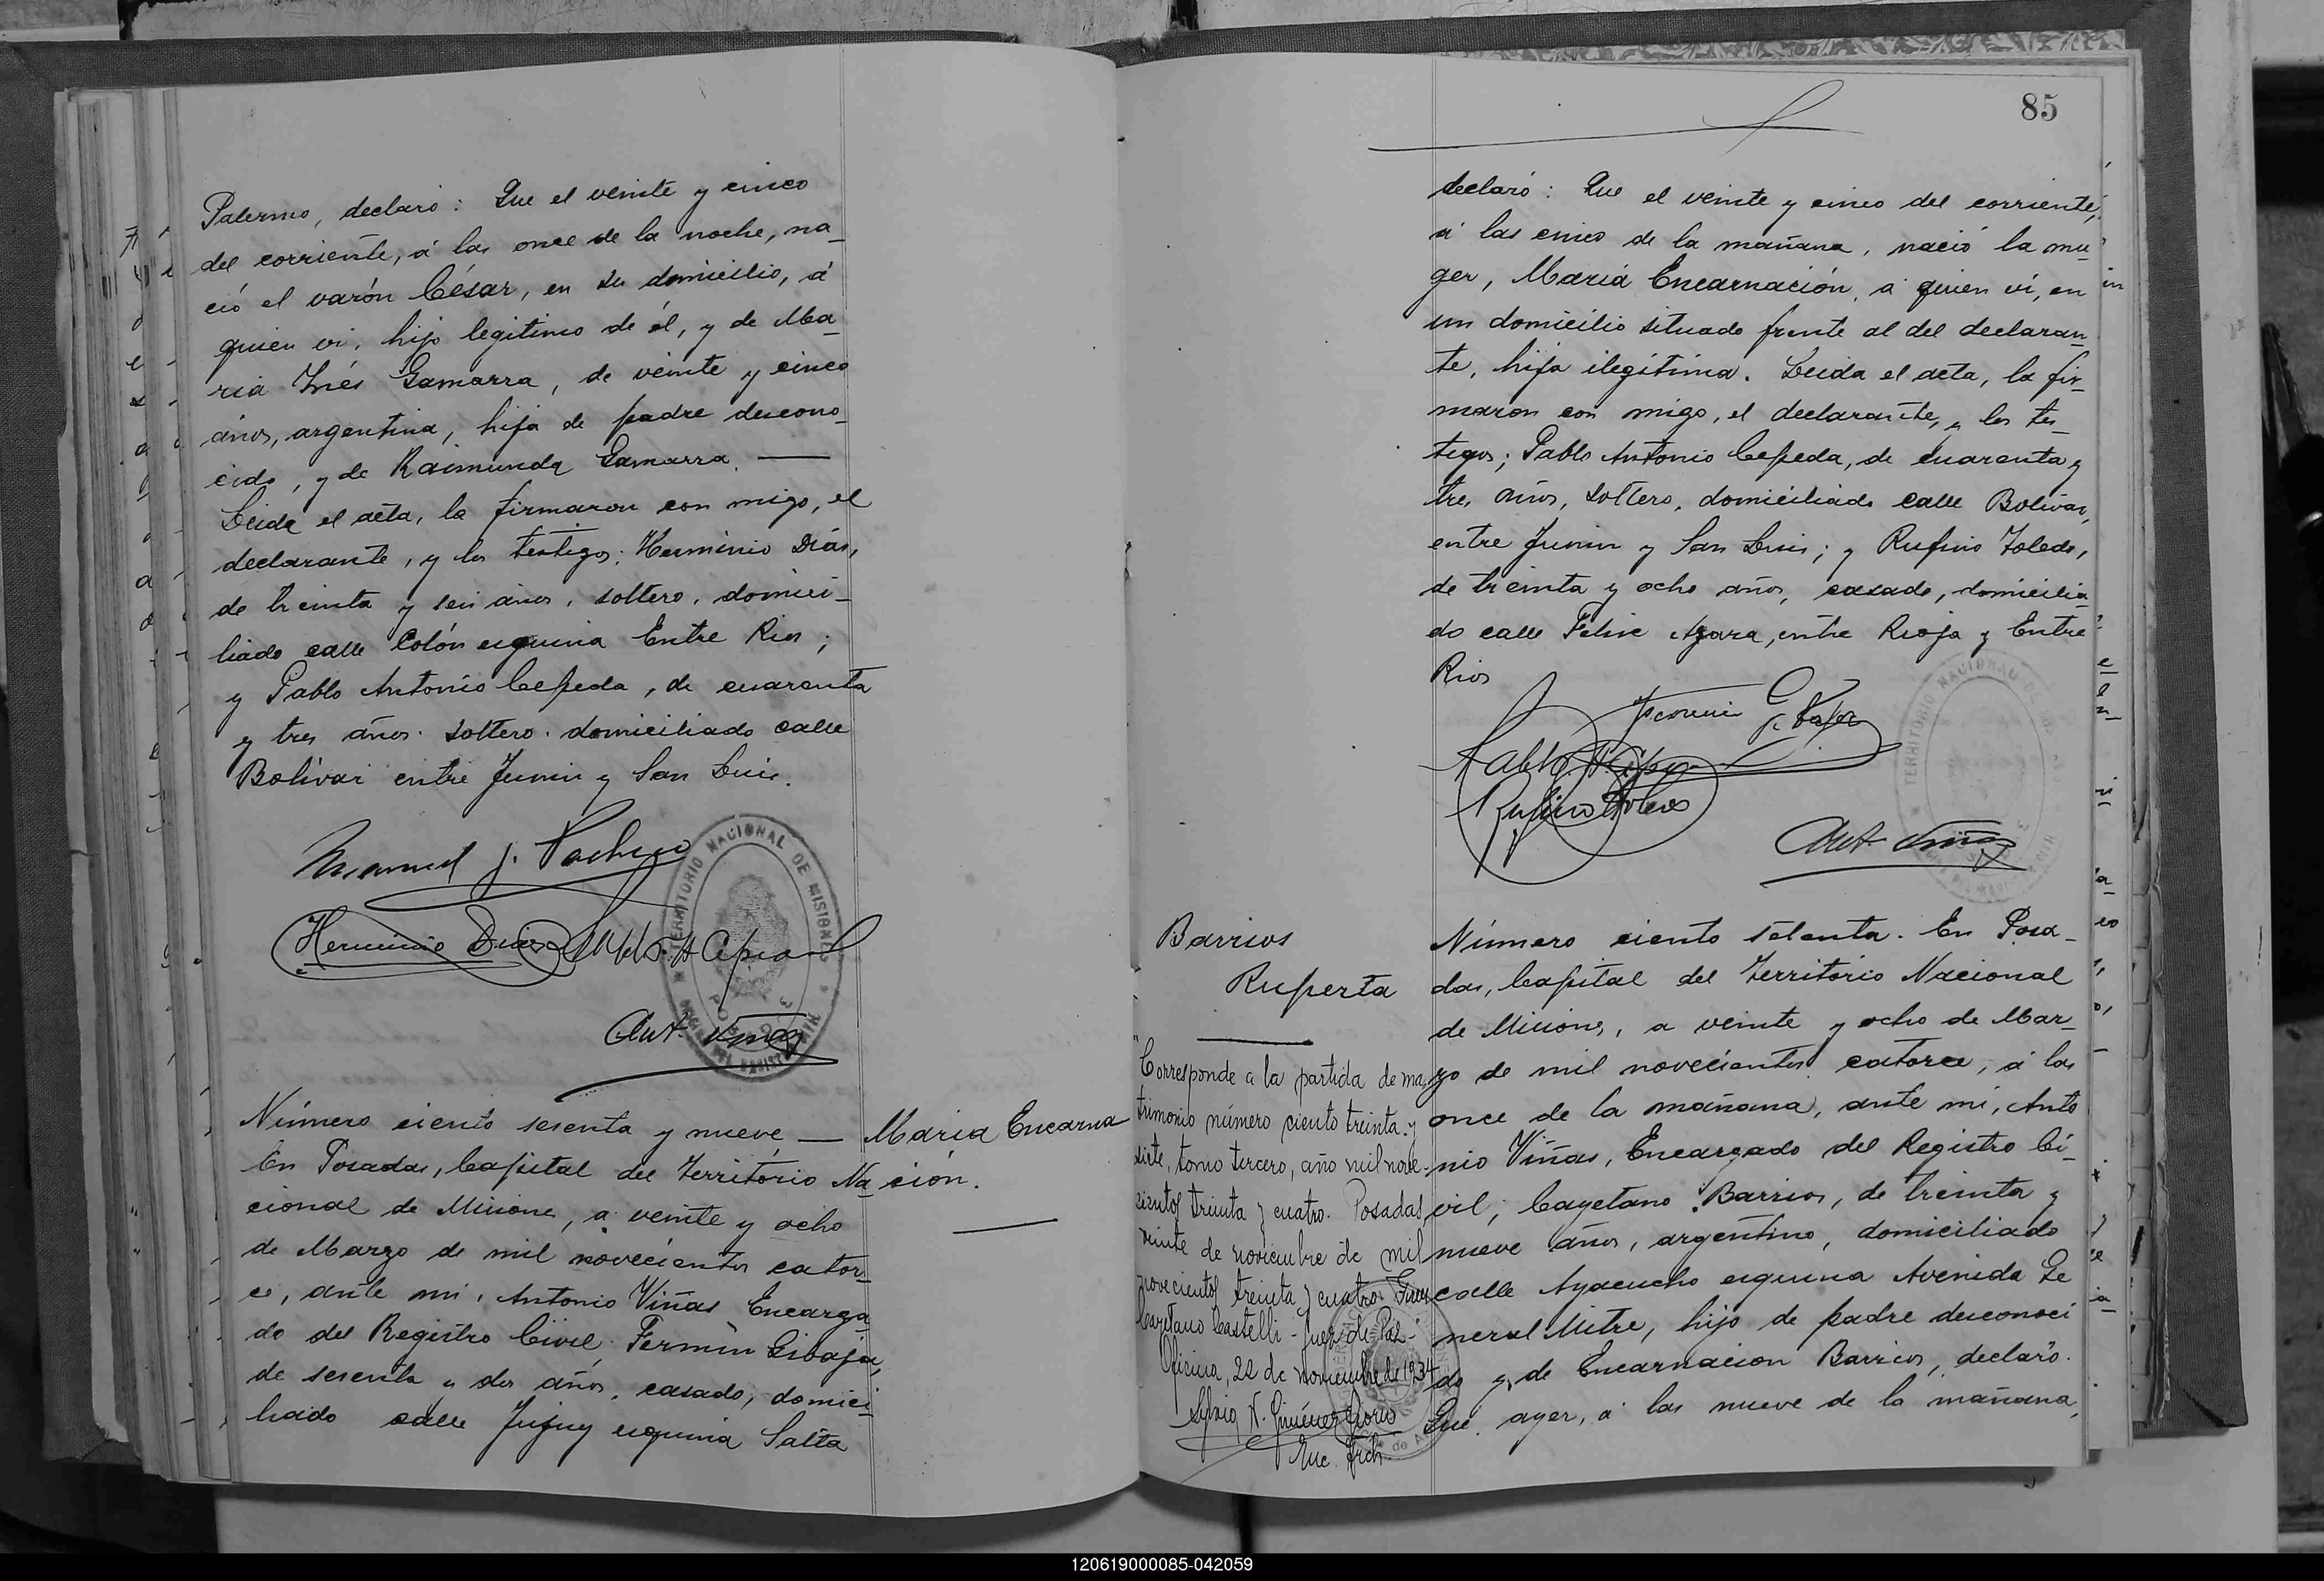 Palermo, declaró: Que el veinte y cinco
del corriente, á las once de la noche, na_
ció el varón César, en su domicilio, á
quien vi, hijo legitimo de él, y de Ma_
ria Inés Gamarra, de veinte y cinco
años, argentina, hija de padre descono_
cido, y de Raimunda Gamarra. —
Leida el acta, la firmaron con migo, el
declarante, y los testigos: Herminio Diás,
de treinta y seis años, soltero, domici_
liado calle Colón esquina Entre Rios;
y Pablo Antonio Cepeda, de cuarenta
y tres años. soltero. domiciliado calle
Bolivar entre Junin y San Luis.
Manuel J. Pacheco
Herminio Dias Pablo A Cepeda
TERRITORIO NACIONAL DE MISIONES
Ant. Viñas
Número ciento sesenta y nueve —
En Posadas, Capital del Territorio Na_
cional de Misiones, a veinte y ocho
de Marzo de mil novecientos cator_
ce, ante mi, Antonio Viñas Encarga_
do del Registro Civil Fermin Gibaja,
de sesenta y dos años, casado, domici_
liado calle Jujuy esquina Salta
Maria Encarna
ción.
85
declaró: Que el veinte y cinco del corriente,
á las cinco de la mañana, nació la mu_
ger, Maria Encarnación, a quien vi, en
un domicilio situado frente al del declaran_
te, hija ilegitima. Leida el acta, la fir_
maron con migo, el declarante, y los tes_
tigos; Pablo Antonio Cepeda, de cuarenta y
tres años, soltero, domiciliado calle Bolivar,
entre Junin y San Luis; y Rufino Toledo,
de treinta y ocho años, casado, domicilia_
do calle Felix Azara, entre Rioja y Entre
Rios
Pablo A. Cepeda
Rufino Toledo
TERRITORIO NACIONAL DE
Ant Viñas
Barrios
Ruperta
"Corresponde a la partida de ma_
trimonio número ciento treinta y
siete, tomo tercero, año mil nove_
cientos treinta y cuatro. Posadas,
veinte de noviembre de mil
novecientos treinta y cuatro.
Cayetano Castelli - Juez de Paz -"
Oficina, 22 de noviembre de 1934
Enc. Arch.
Número ciento setenta. En Posa_
das, Capital del Territorio Nacional
de Misiones, a veinte y ocho de Mar_
zo de mil novecientos catorce, á las
once de la mañana, ante mi, Anto
nio Viñas, Encargado del Registro Ci_
vil, Cayetano Barrios, de treinta y
nueve años, argentino, domiciliado
calle Ayacucho esquina Avenida Ge
neral Mitre, hijo de padre desconoci
do y de Encarnacion Barrios, declaró.
Que ayer, á las nueve de la mañana,
120619000085-042059